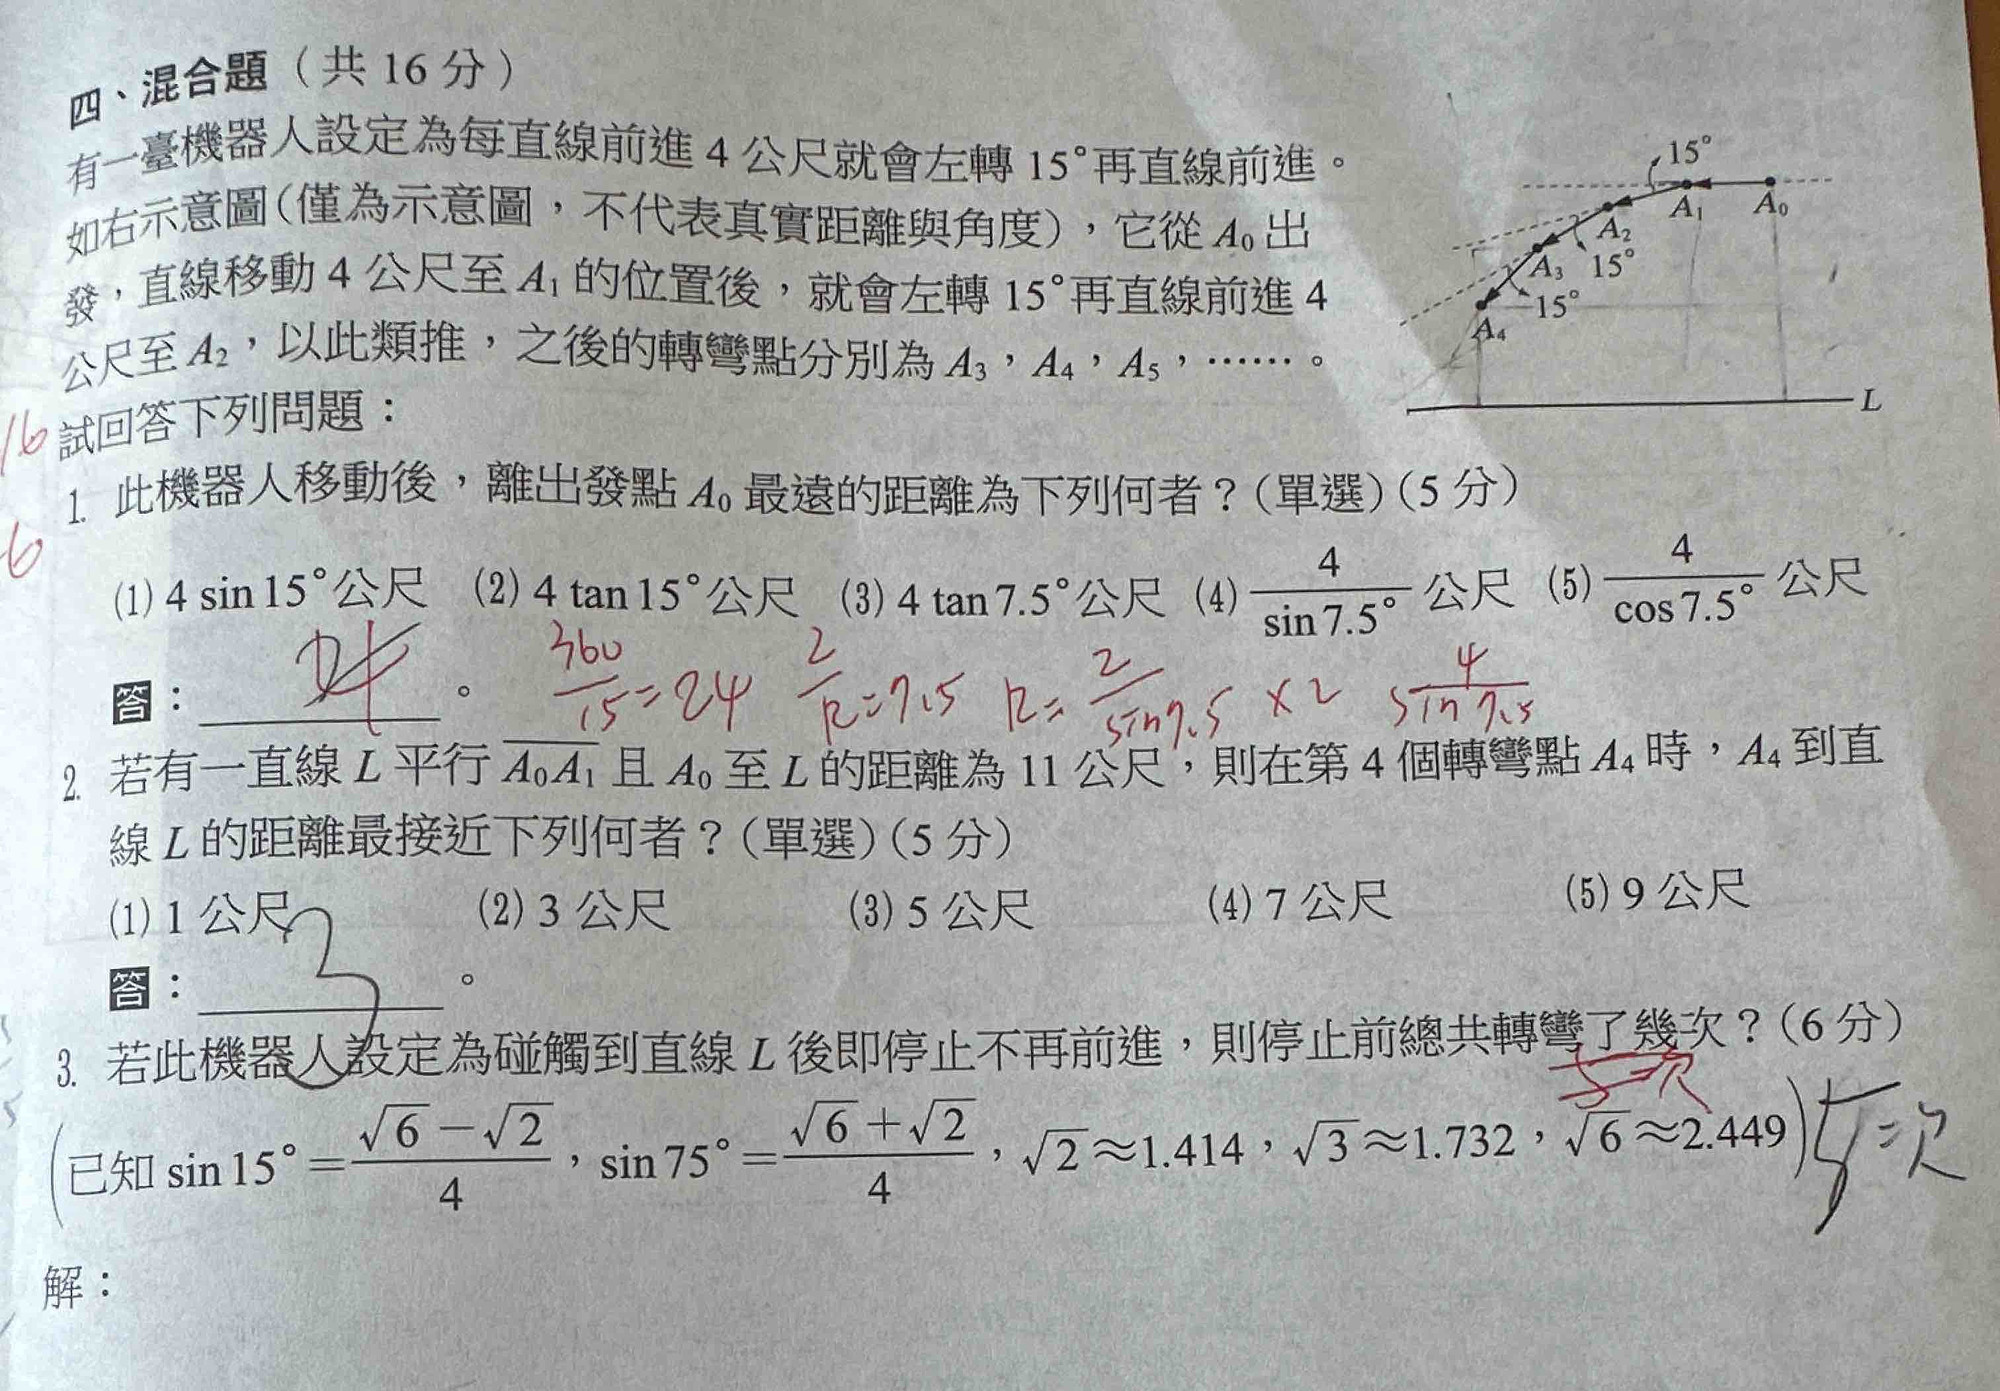 四、混合題（共 16 分）
有一臺機器人設定為每直線前進 4 公尺就會左轉 15°再直線前進。
如右示意圖(僅為示意圖，不代表真實距離與角度)，它從 A₀ 出
發，直線移動 4 公尺至 A₁ 的位置後，就會左轉 15°再直線前進 4
公尺至 A₂，以此類推，之後的轉彎點分別為 A₃，A₄，A₅，……。
試回答下列問題：
15°
A₁ A₀
A₂
A₃ 15°
15°
A₄
L
16
1. 此機器人移動後，離出發點 A₀ 最遠的距離為下列何者？(單選)(5 分)
6
(1) 4 sin 15°公尺 (2) 4 tan 15°公尺 (3) 4 tan 7.5°公尺 (4) 4/sin 7.5° 公尺 (5) 4/cos 7.5° 公尺
答： 。 360/15=24 2/R=7.5 R=2/sin7.5 ×2 4/sin7.5
2. 若有一直線 L 平行 A₀A₁ 且 A₀ 至 L 的距離為 11 公尺，則在第 4 個轉彎點 A₄ 時，A₄ 到直
線 L 的距離最接近下列何者？(單選)(5 分)
(1) 1 公尺 (2) 3 公尺 (3) 5 公尺 (4) 7 公尺 (5) 9 公尺
答： 3 。
3. 若此機器人設定為碰觸到直線 L 後即停止不再前進，則停止前總共轉彎了幾次？(6 分)
5次
(已知 sin 15°=(√6−√2)/4，sin 75°=(√6+√2)/4，√2≈1.414，√3≈1.732，√6≈2.449) 5次
解：